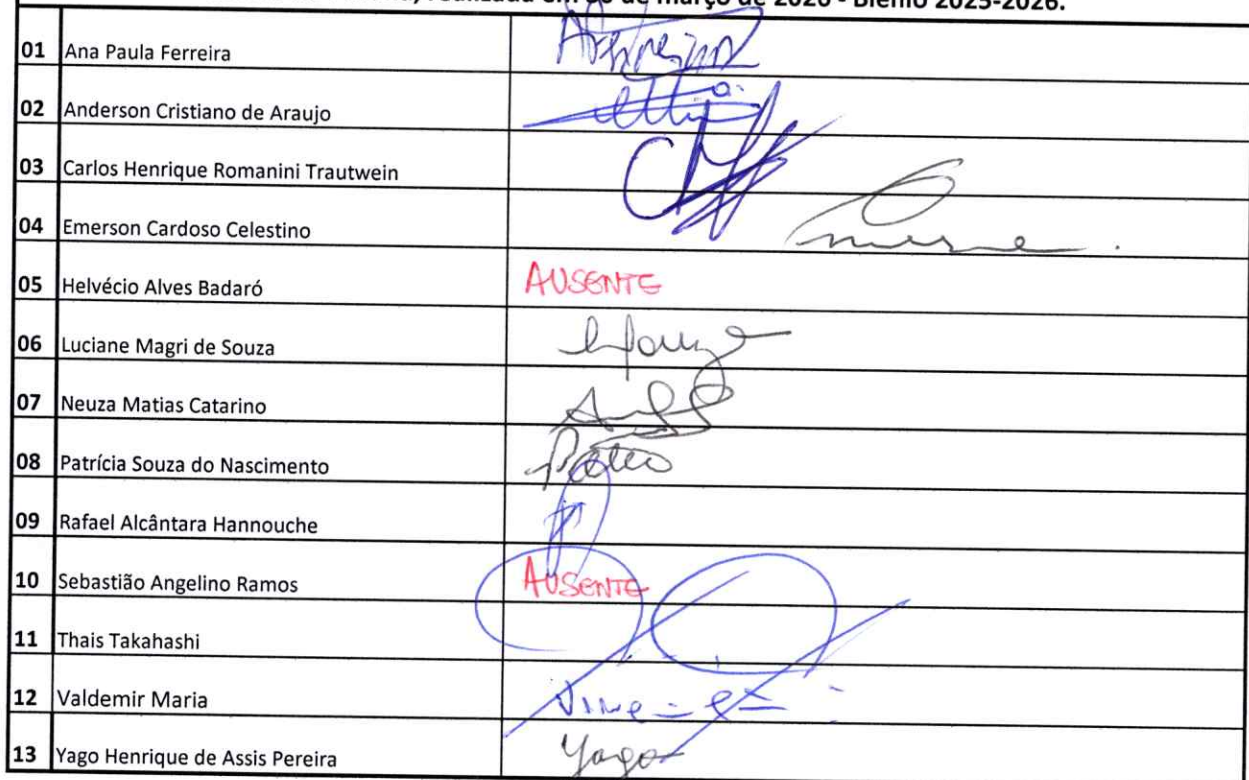 realizada em 30 de março de 2026 - Biênio 2025-2026.
01 Ana Paula Ferreira
02 Anderson Cristiano de Araujo
03 Carlos Henrique Romanini Trautwein
04 Emerson Cardoso Celestino
05 Helvécio Alves Badaró AUSENTE
06 Luciane Magri de Souza
07 Neuza Matias Catarino
08 Patrícia Souza do Nascimento
09 Rafael Alcântara Hannouche
10 Sebastião Angelino Ramos AUSENTE
11 Thais Takahashi
12 Valdemir Maria
13 Yago Henrique de Assis Pereira Yago